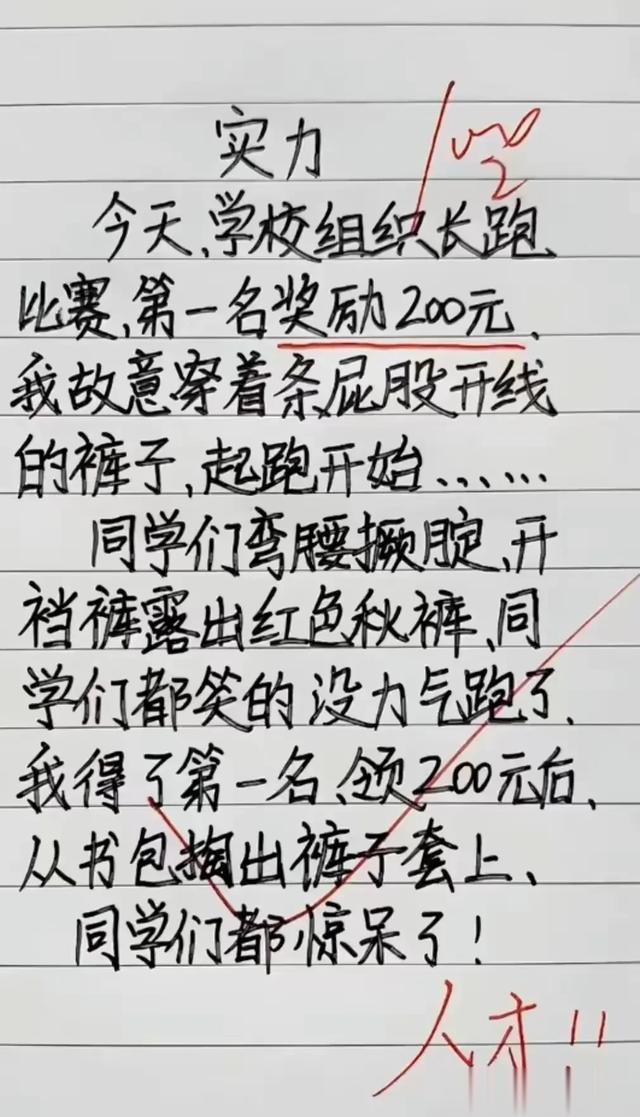 实力
今天,学校组织长跑、
比赛,第一名奖励200元、
我故意穿着条屁股开线
的裤子,起跑开始……
同学们弯腰撅腚、开
裆裤露出红色秋裤、同
学们都笑的没力气跑了、
我得了第一名、领200元后、
从书包掏出裤子套上、
同学们都惊呆了!
人才!!